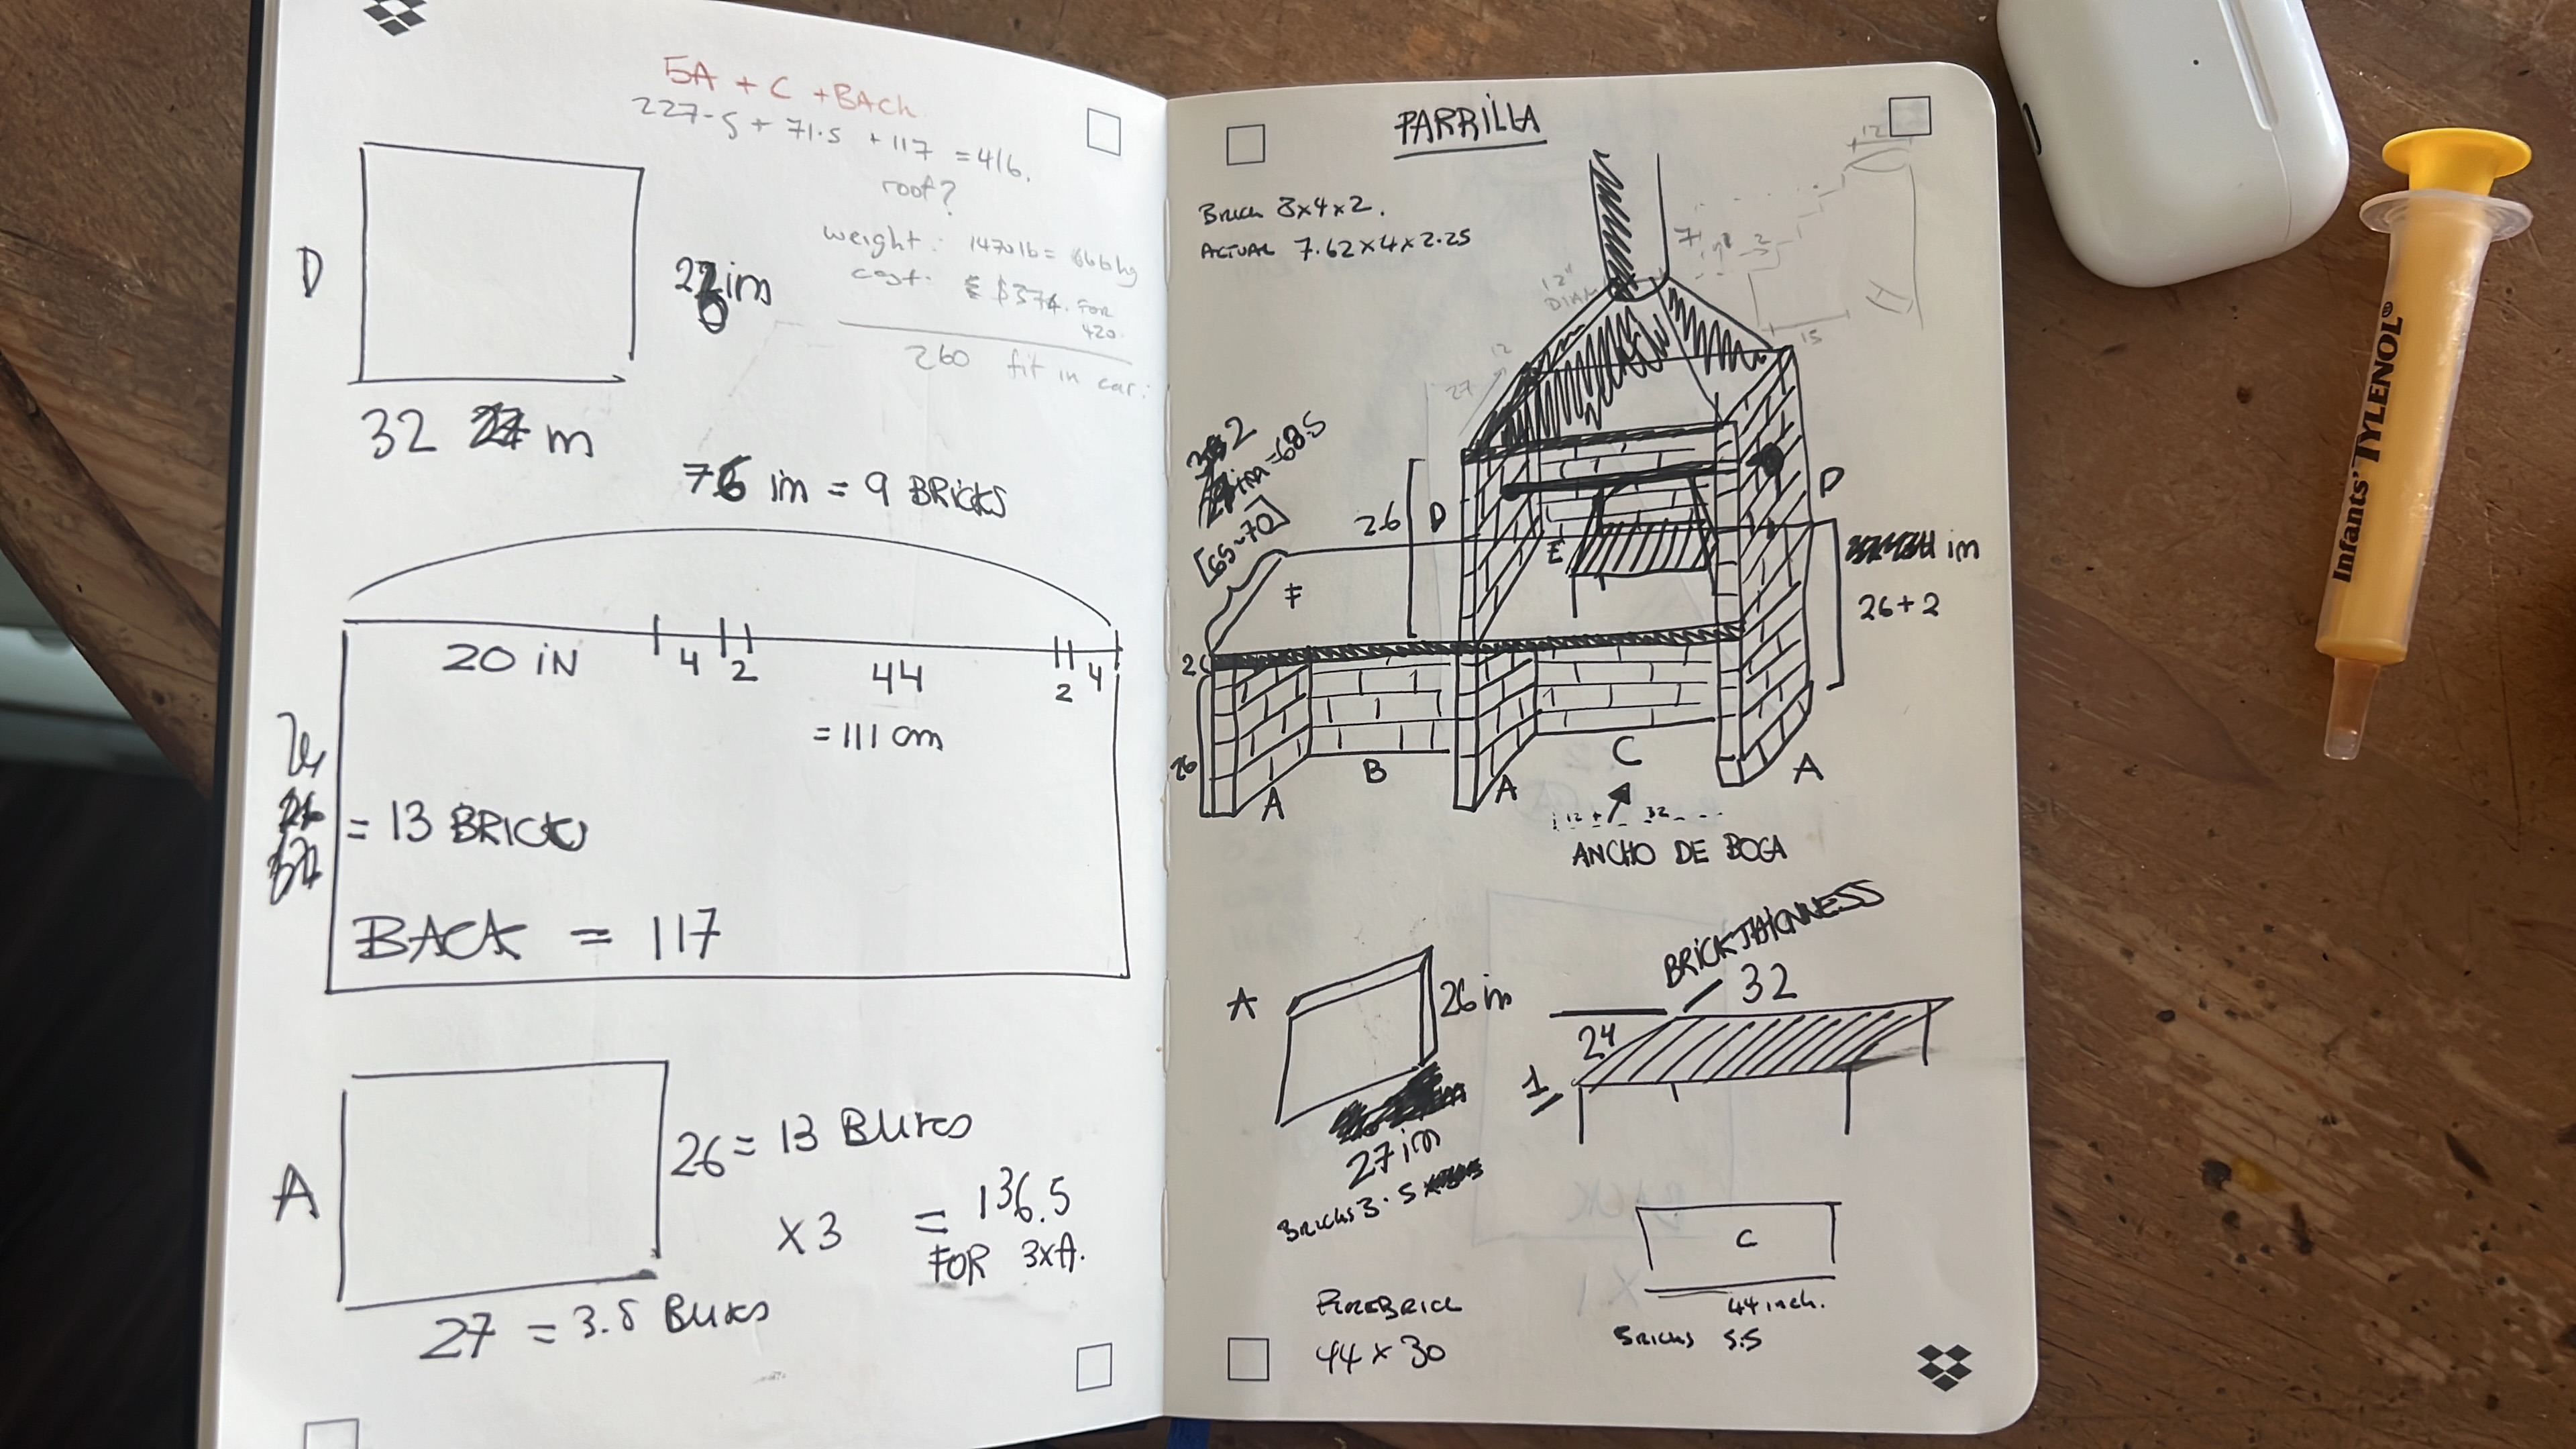 5A + C + BACK
227.5 + 71.5 + 117 = 416.
roof?
weight: 1470lb = 666kg
cost: $374. FOR
420.
260 fit in car:
D
in
32 m
76 in = 9 BRICKS
20 IN 4 2 44 2 4
= 111 cm
= 13 BRICKS
BACK = 117
A
26 = 13 BRICKS
X3 = 136.5
FOR 3xA.
27 = 3.5 BRICKS
PARRILLA
BRICK 8x4x2.
ACTUAL 7.62x4x2.25
12
7
2
15
12"
DIAM
12
27
in=68.5
[65-70]
26
D
D
E
F
in
26+2
2
26
A
B
A
C
A
12 + 32
ANCHO DE BOCA
A
26 in
27 in
BRICKS 3.5
BRICK THICKNESS
32
24
1
C
44 inch.
BRICKS 5.5
FIREBRICK
44 x 30
Infants' TYLENOL®